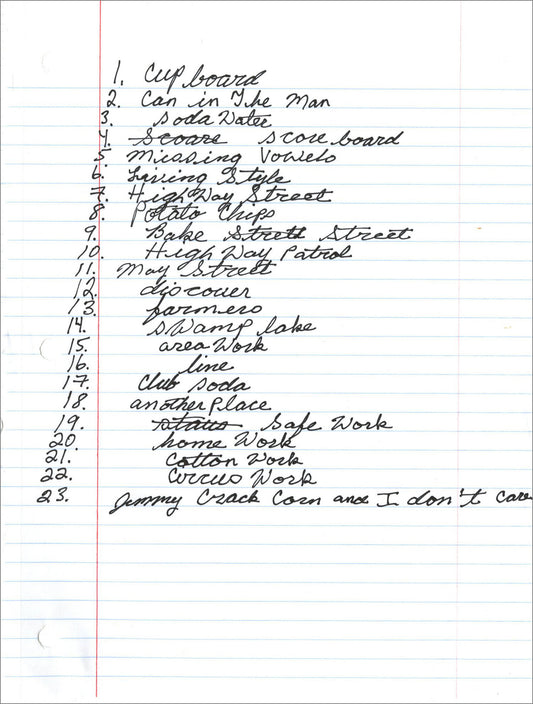 1. Cupboard
2. Can in The Man
3. Soda Water
4. Scoare score board
5. Missing Vowels
6. Living Style
7. High Way Street
8. Potato Chips
9. Bake Strett Street
10. High Way Patrol
11. May Street
12. discover
13. farmers
14. swamp lake
15. area Work
16. line
17. Club soda
18. another Place
19. Safe Work
20 home Work
21. Cotton Work
22. Circus Work
23. Jimmy Crack Corn and I don't care